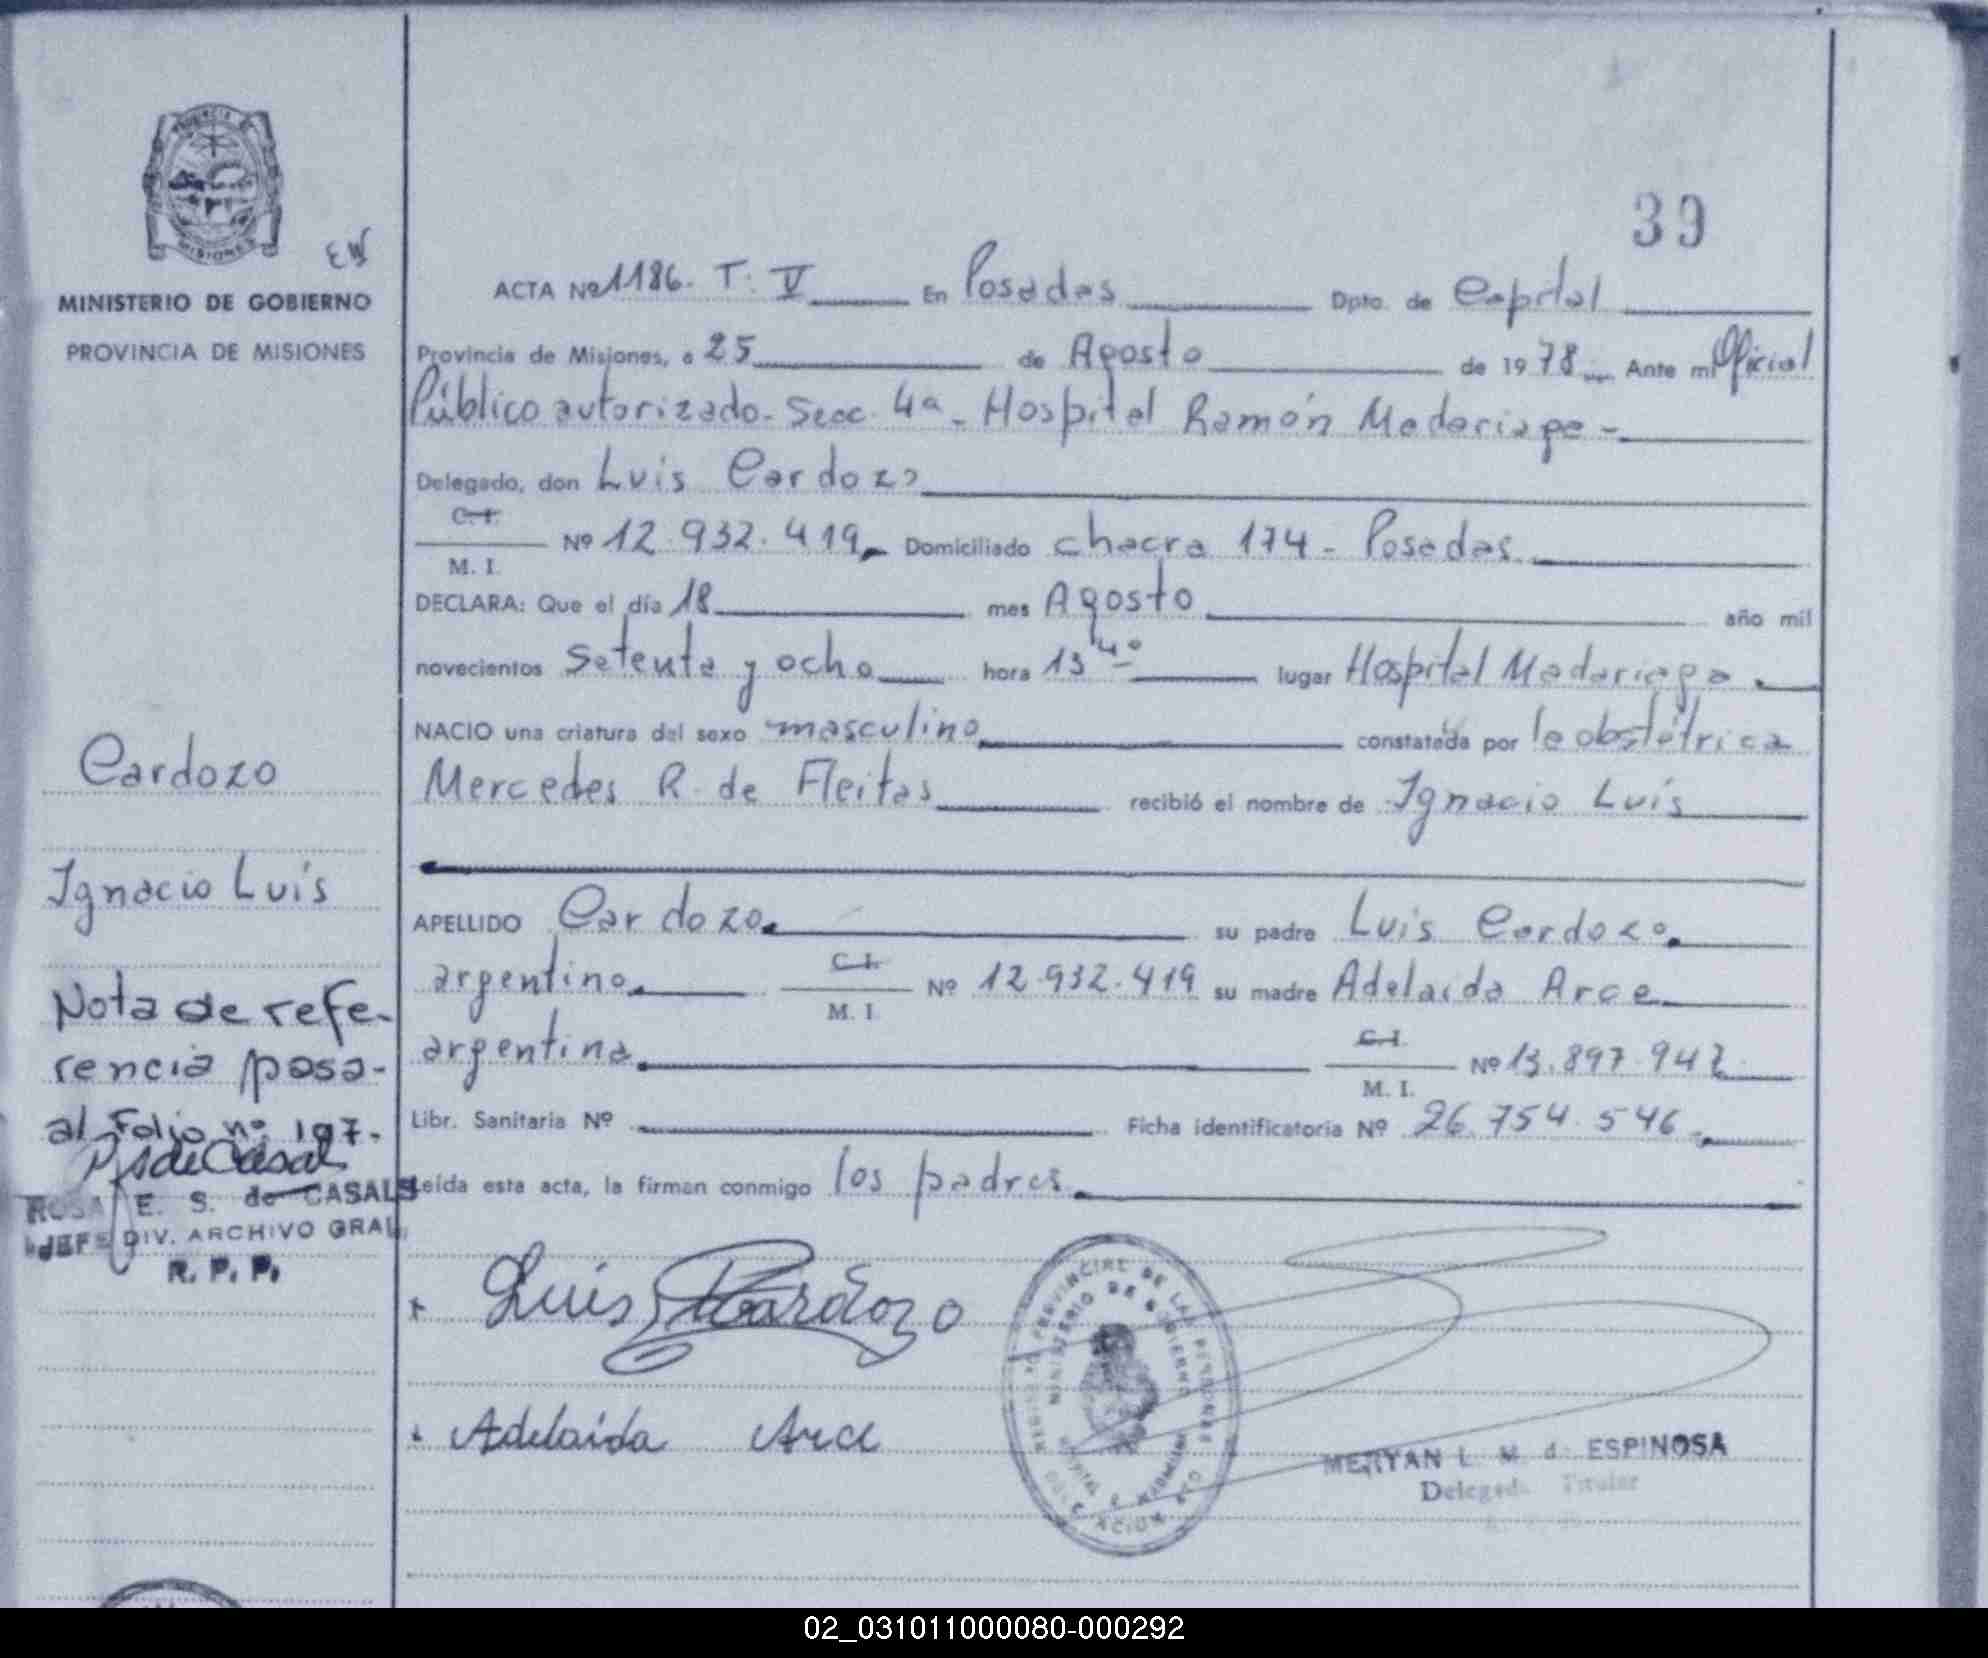 39
EW
MINISTERIO DE GOBIERNO
PROVINCIA DE MISIONES
ACTA Nº 1186. T. V En Posadas Dpto. de Capital
Provincia de Misiones, a 25 de Agosto de 1978 Ante mi Oficial
Público autorizado - Secc. 4a - Hospital Ramón Madariaga -
Delegado, don Luis Cardozo
C. I.
Nº 12.932.419 Domiciliado chacra 174 - Posadas
M. I.
DECLARA: Que el día 18 mes Agosto año mil
novecientos setenta y ocho hora 13 40 lugar Hospital Madariaga
NACIO una criatura del sexo masculino constatada por la obstétrica
Mercedes R. de Fleitas recibió el nombre de Ignacio Luis
APELLIDO Cardozo su padre Luis Cardozo
argentino C. I. Nº 12.932.419 su madre Adelaida Arce
M. I.
argentina C. I. Nº 13.897.942
M. I.
Libr. Sanitaria Nº Ficha identificatoria Nº 26.754.546
Leída esta acta, la firman conmigo los padres
Cardozo
Ignacio Luis
Nota de refe-
rencia pasa-
al Folio nº 197.
ROSA E. S. de CASALS
JEFE DIV. ARCHIVO GRAL.
R. P. P.
Luis Cardozo
Adelaida Arce
PROVINCIAL DE LAS PERSONAS
MINISTERIO DE GOBIERNO
MERYAN L. M. de ESPINOSA
Delegada Titular
02_031011000080-000292